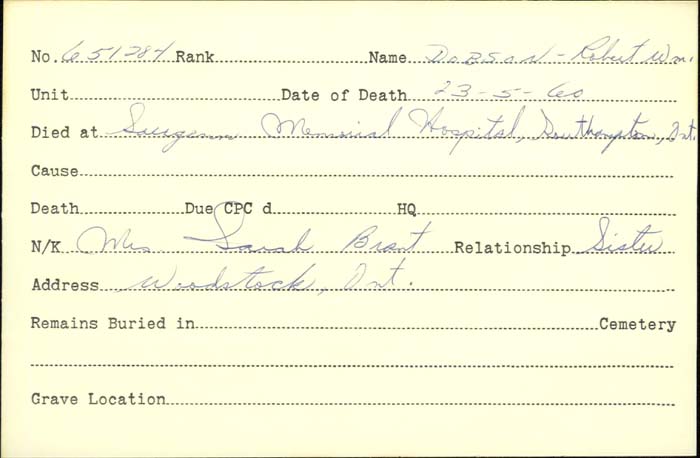 No. 651284 Rank Name DOBSON - Robert Wm.
Unit Date of Death 23-5-60
Died at Saugeen Memorial Hospital, Southampton, Ont.
Cause
Death Due CPC d HQ
N/K Mrs Sarah Brant Relationship Sister
Address Woodstock, Ont.
Remains Buried in Cemetery
Grave Location